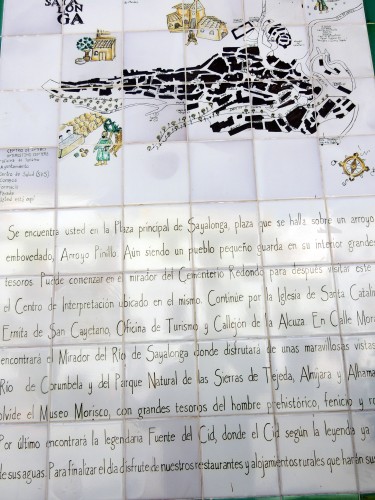 SAYALONGA
Centro de Salud
Se encuentra usted en la Plaza principal de Sayalonga, plaza que se halla sobre un arroyo
embovedado, Arroyo Pinillo. Aún siendo un pueblo pequeño guarda en su interior grandes
tesoros. Puede comenzar en el mirador del Cementerio Redondo para después visitar este y
el Centro de Interpretación ubicado en el mismo. Continúe por la Iglesia de Santa Catalin
Ermita de San Cayetano, Oficina de Turismo y Callejón de la Alcuza. En Calle Mora
encontrará el Mirador del Río de Sayalonga donde disfrutará de unas maravillosas vistas
Río de Corumbela y del Parque Natural de las Sierras de Tejeda, Almijara y Alhama
olvide el Museo Morisco, con grandes tesoros del hombre prehistórico, fenicio y ro
Por último encontrará la legendaria Fuente del Cid, donde el Cid según la leyenda
de sus aguas. Para finalizar el día disfrute de nuestros restaurantes y alojamientos rurales que harán sus